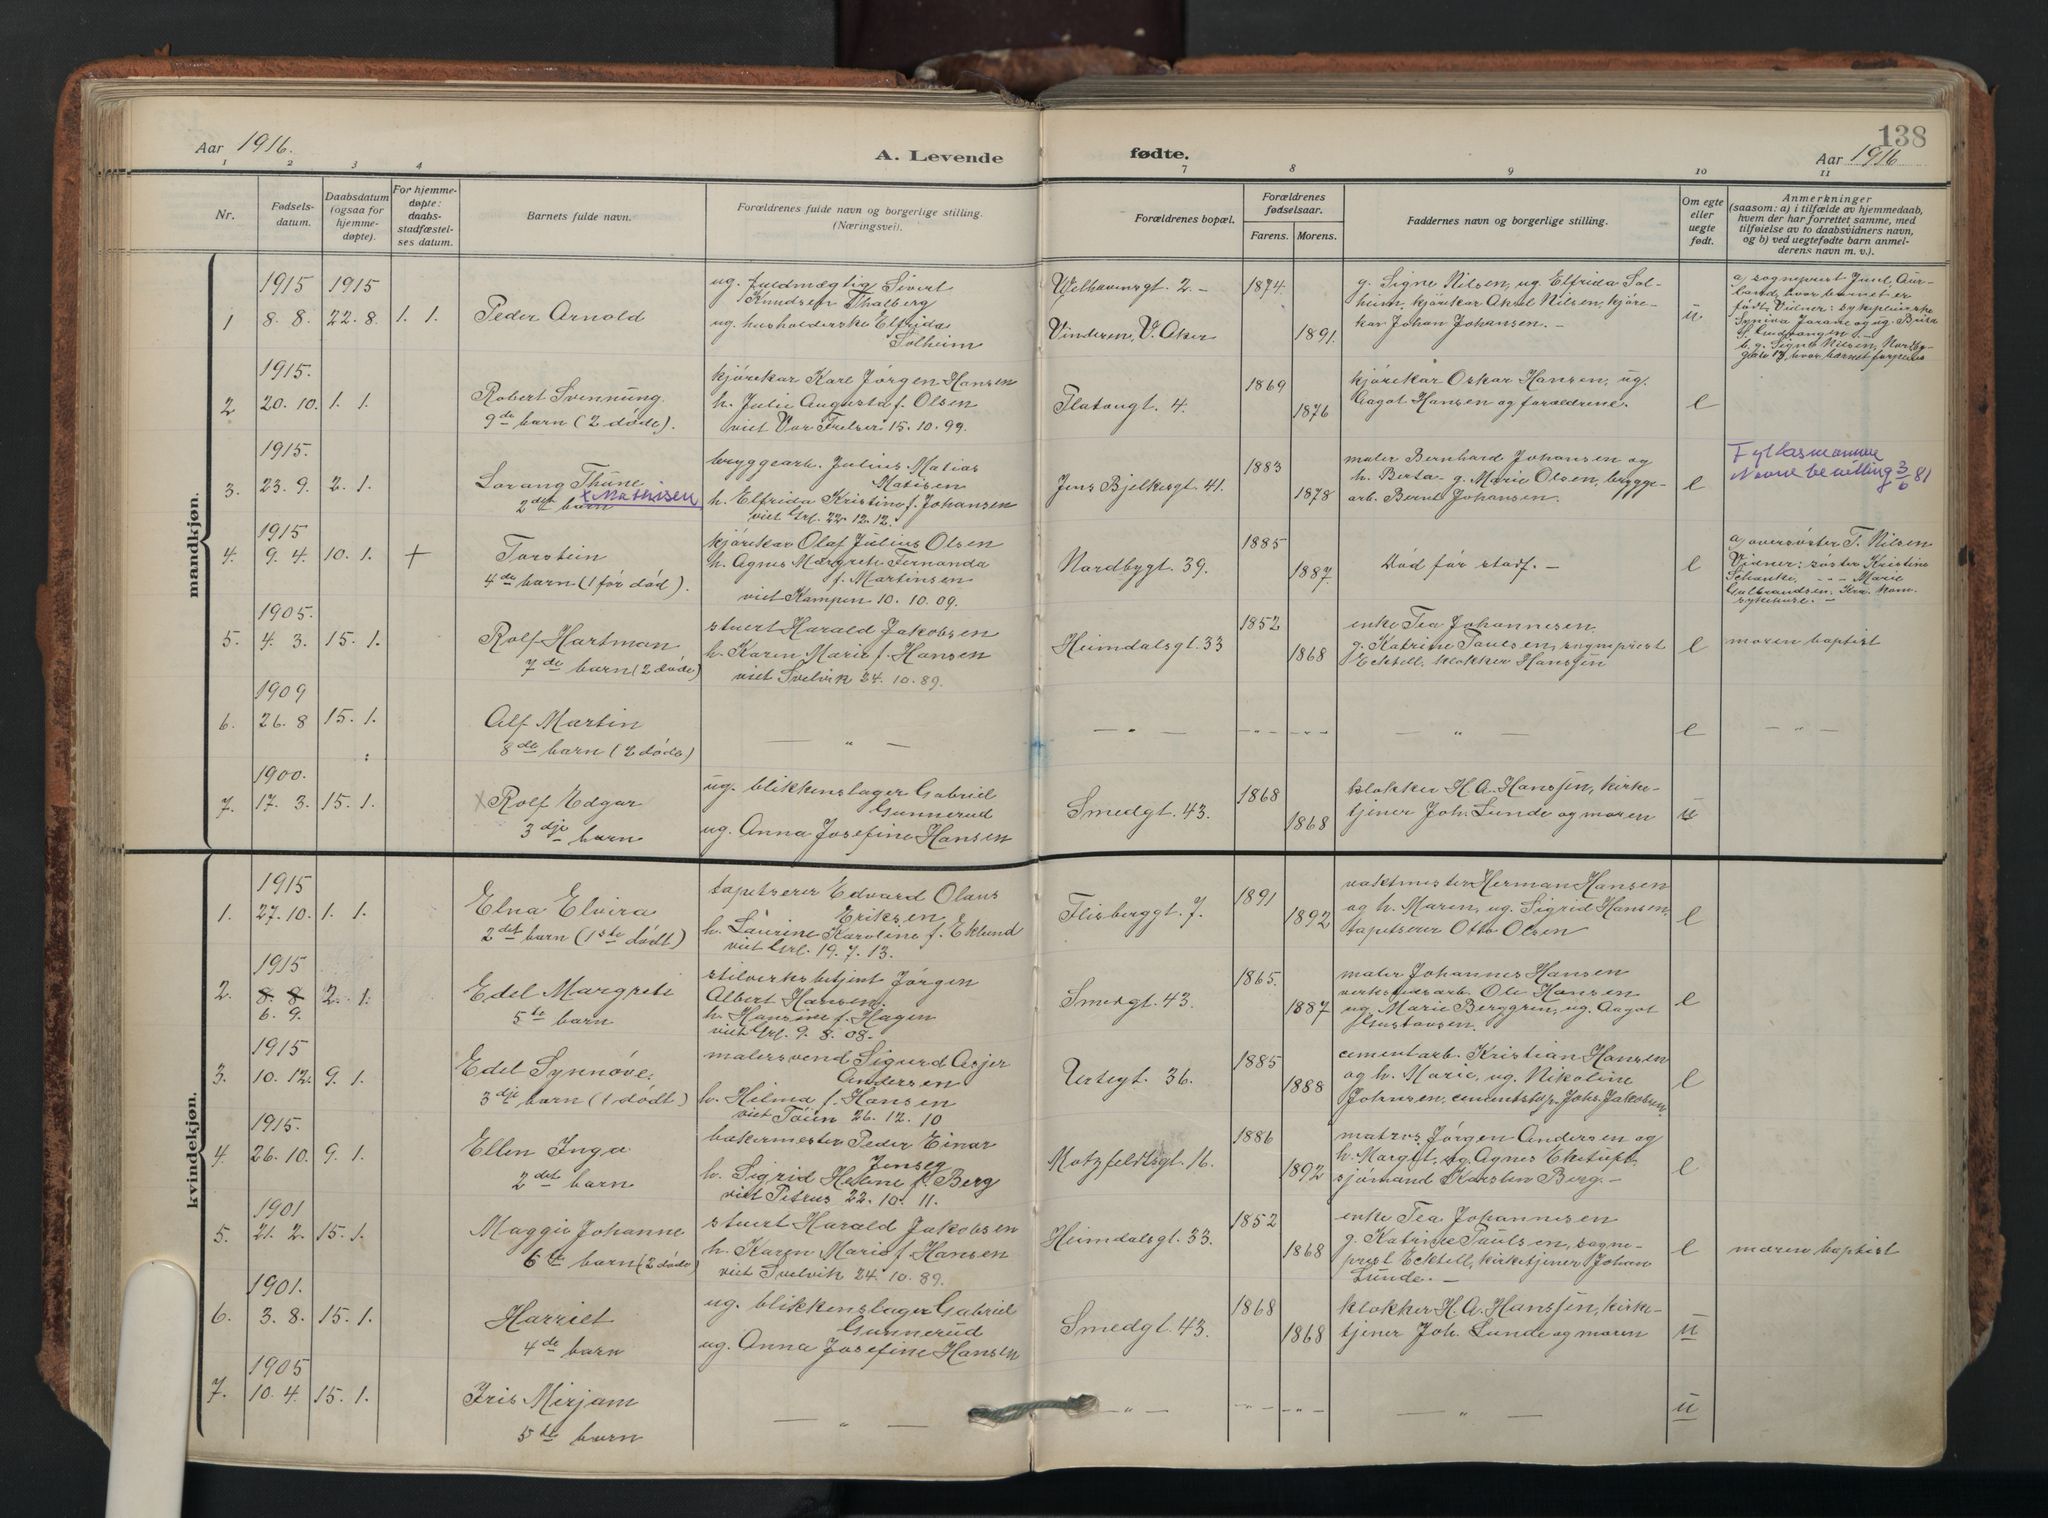 138
Aar 1916.
A. Levende
fødte.
Aar 1916
1 2 3 4 7 8 9 10 11
Nr.
Fødsels-
datum.
Daabsdatum
(ogsaa for
hjemme-
døpte).
For hjemme-
døpte:
daabs-
stadfæstel-
ses datum.
Barnets fulde navn.
Forældrenes fulde navn og borgerlige stilling.
(Næringsvei).
Forældrenes bopæl.
Forældrenes
fødselsaar.
Farens. Morens.
Faddernes navn og borgerlige stilling.
Om egte
eller
uegte
født.
Anmerkninger
(saasom: a) i tilfælde av hjemmedaab,
hvem der har forrettet samme, med
tilføielse av to daabsvidners navn,
og b) ved uegtefødte barn anmel-
derens navn m. v.).
mandkjøn.
1 1915 8. 8. 1915 22. 8. 1. 1.
Peder Arnold
ug. fuldmægtig Sivert
Knudsen Thalberg
ug. husholderske Elfrida
Solheim
Welhavensgt. 2 —
Vinderen, V. Aker
1874 1891
g. Signe Nilsen, ug. Elfrida Sol-
heim, kjørekar Aksel Nilsen, kjøre-
kar Johan Johansen. —
u
a) sogneprest Juul, Aur-
land, hvor barnet er
født. Vidner: sykepleierske
b. g. Signe Nilsen, Nordby-
gate 17, hvor barnet forpleies
2 1915. 20. 10. 1. 1.
Robert Svennung.
9de barn (2 døde).
kjørekar Karl Jørgen Hansen
h. Julie Augusta f. Olsen
viet Vor Frelser 15. 10. 99.
Platougt. 4.
1869 1876
kjørekar Oskar Hansen, ug.
Aagot Hansen og forældrene.
e
3. 1915. 23. 9. 2. 1.
Lorang Thune
x Mathisen
2det barn
bryggearb. Julius Matias
Matisen
h. Elfrida Kristine f. Johansen
viet Grl. 22. 12. 12.
Jens Bjelkesgt. 41.
1883 1878
maler Bernhard Johansen og
h. Berta, g. Marie Olsen, brygge-
arb. Bernt Johansen.
e
Navnebevilling 3/6 81
4. 1915 9. 4. 10. 1. +
Torstein
4de barn (1 før død).
kjørekar Olaf Julius Olsen
h. Agnes Margrete Fernanda
f. Martinsen
viet Kampen 10. 10. 09.
Nordbygt. 39.
1885 1887.
Død før stadf. —
e
a) oversøster T. Nilsen
Vidner: søster Kristine
Schanke, — „ — Marie
Gulbrandsen, Kra. kom.
sykehuse. —
5. 1905. 4. 3. 15. 1.
Rolf Hartman
7de barn (2 døde)
stuert Harald Jakobsen
h. Karen Marie f. Hansen
viet Svelvik 24. 10. 89.
Heimdalsgt. 33
1852 1868
enke Tea Johannesen,
g. Katrine Paulsen, sogneprest
Ecktell, klokker Hanssen
e
moren baptist
6. 1909 26. 8 15. 1.
Alf Martin
8de barn (2 døde)
— „ —
— „ —
— „ —
— „ —
— „ —
e
— „ —
7. 1900. 17. 3. 15. 1.
x Rolf Edgar
3dje barn
ug. blikkenslager Gabriel
Gunnerud
ug. Anna Josefine Hansen
Smedgt. 43.
1868 1868
klokker H. A. Hanssen, kirke-
tjener Joh. Lunde og moren
u
kvindekjøn.
1. 1915 27. 10. 1. 1.
Elna Elvira
2det barn (1ste dødt)
tapetserer Edvard Olaus
Eriksen
h. Laurine Karoline f. Eklund
viet Grl. 19. 7. 13.
Flisberggt. 7.
1891 1892
vaktmester Herman Hansen
og h. Maren, ug. Sigrid Hansen,
tapetserer Otto Olsen
e
2. 1915 8. 8 6. 9. 2. 1.
Edel Margrete
5te barn
stilverksbetjent Jørgen
Albert Hansen.
h. Hansine f. Hagen
viet Grl. 9. 8. 08.
Smedgt. 43.
1865. 1887
maler Johannes Hansen
verkstedsarb. Ole Hansen
ug. Marie Berggren, ug. Aagot
Gustavsen.
e
3. 1915 10. 12. 9. 1.
Edel Synnøve,
3dje barn (1 dødt)
malersvend Sigurd Asjer
Andersen
h. Hilma f. Hansen
viet Tøien 26. 12. 10
Urtegt. 36.
1885 1888
cementarb. Kristian Hansen
og h. Marie, ug. Nikoline
Johnsen, cementstøp. Johs. Jakobsen.
e
4. 1915. 26. 10. 9. 1.
Ellen Inga
2det barn
bakermester Peder Einar
Jensen
h. Sigrid Helene f. Berg
viet Petrus 22. 10. 11.
Motzfeldtsgt. 16.
1886 1892
matros Jørgen Andersen og
h. Margit, ug. Agnes Eketuft,
sjømand Karsten Berg. —
e
5. 1901 21. 2. 15. 1.
Maggie Johanne
6te barn (2 døde)
stuert Harald Jakobsen
h. Karen Marie f. Hansen
viet Svelvik 24. 10. 89.
Heimdalsgt. 33.
1852 1868
enke Tea Johannesen
g. Katrine Paulsen, sogne-
prest Ecktell, kirketjener Johan
Lunde. —
e
moren baptist
6. 1901. 3. 8. 15. 1.
Harriet
4de barn
ug. blikkenslager Gabriel
Gunnerud
ug. Anna Josefine Hansen
Smedgt. 43.
1868 1868
klokker H. A. Hanssen, kirke-
tjener Joh. Lunde og moren
u
7. 1905 10. 4. 15. 1.
Iris Mirjam
5te barn
— „ —
— „ —
— „ —
— „ —
— „ —
u